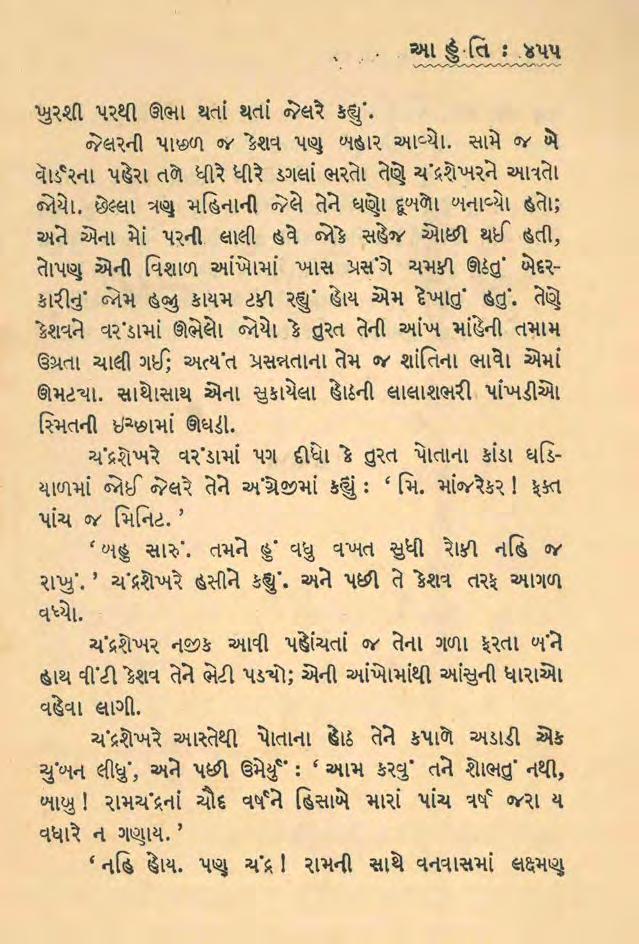 આહુતિ : ૪૫૫
ખુરશી પરથી ઊભા થતાં થતાં જેલરે કહ્યું.
જેલરની પાછળ જ કેશવ પણ બહાર આવ્યો. સામે જ બે
વૉર્ડરના પહેરા તળે ધીરે ધીરે ડગલાં ભરતો તેણે ચંદ્રશેખરને આવતો
જોયો. છેલ્લા ત્રણ મહિનાની જેલે તેને ઘણો દૂબળો બનાવ્યો હતો;
અને એના મોં પરની લાલી હવે જોકે સહેજ ઓછી થઈ હતી,
તોપણ એની વિશાળ આંખોમાં ખાસ પ્રસંગે ચમકી ઊઠતું બેદર-
કારીનું જોમ હજુ કાયમ ટકી રહ્યું હોય એમ દેખાતું હતું. તેણે
કેશવને વરંડામાં ઊભેલો જોયો કે તુરત તેની આંખ માંહેની તમામ
ઉગ્રતા ચાલી ગઈ; અત્યંત પ્રસન્નતાના તેમ જ શાંતિના ભાવો એમાં
ઊમટ્યા. સાથોસાથ એના સુકાયેલા હોઠની લાલાશભરી પાંખડીઓ
સ્મિતની ઇચ્છામાં ઊઘડી.
ચંદ્રશેખરે વરંડામાં પગ દીધો કે તુરત પોતાના કાંડા ઘડિ-
યાળમાં જોઈ જેલરે તેને અંગ્રેજીમાં કહ્યું : ‘ મિ. માંજરેકર ! ફક્ત
પાંચ જ મિનિટ. ’
‘ બહુ સારું. તમને હું વધુ વખત સુધી રોકી નહિ જ
રાખું. ’ ચંદ્રશેખરે હસીને કહ્યું. અને પછી તે કેશવ તરફ આગળ
વધ્યો.
ચંદ્રશેખર નજીક આવી પહોંચતાં જ તેના ગળા ફરતા બંને
હાથ વીંટી કેશવ તેને ભેટી પડ્યો; એની આંખોમાંથી આંસુની ધારાઓ
વહેવા લાગી.
ચંદ્રશેખરે આસ્તેથી પોતાના હોઠ તેને કપાળે અડાડી એક
ચુંબન લીધું, અને પછી ઉમેર્યું : ‘ આમ કરવું તને શોભતું નથી,
બાબુ ! રામચંદ્રનાં ચૌદ વર્ષને હિસાબે મારાં પાંચ વર્ષ જરા ય
વધારે ન ગણાય. ’
‘ નહિ હોય. પણ ચંદ્ર ! રામની સાથે વનવાસમાં લક્ષ્મણ